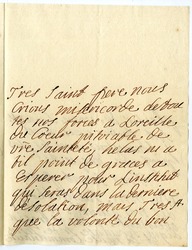 Tres Saint pere nous
Crions misericorde de tou
tes nos forces a Loreille
Du Coeur pitoiable de
vre Sainteté, helas n'i a
til point de graces a
Esperer pour Linstitut
qui seras dans la derniere
desolation, mais Tres S
que la volonté du bon